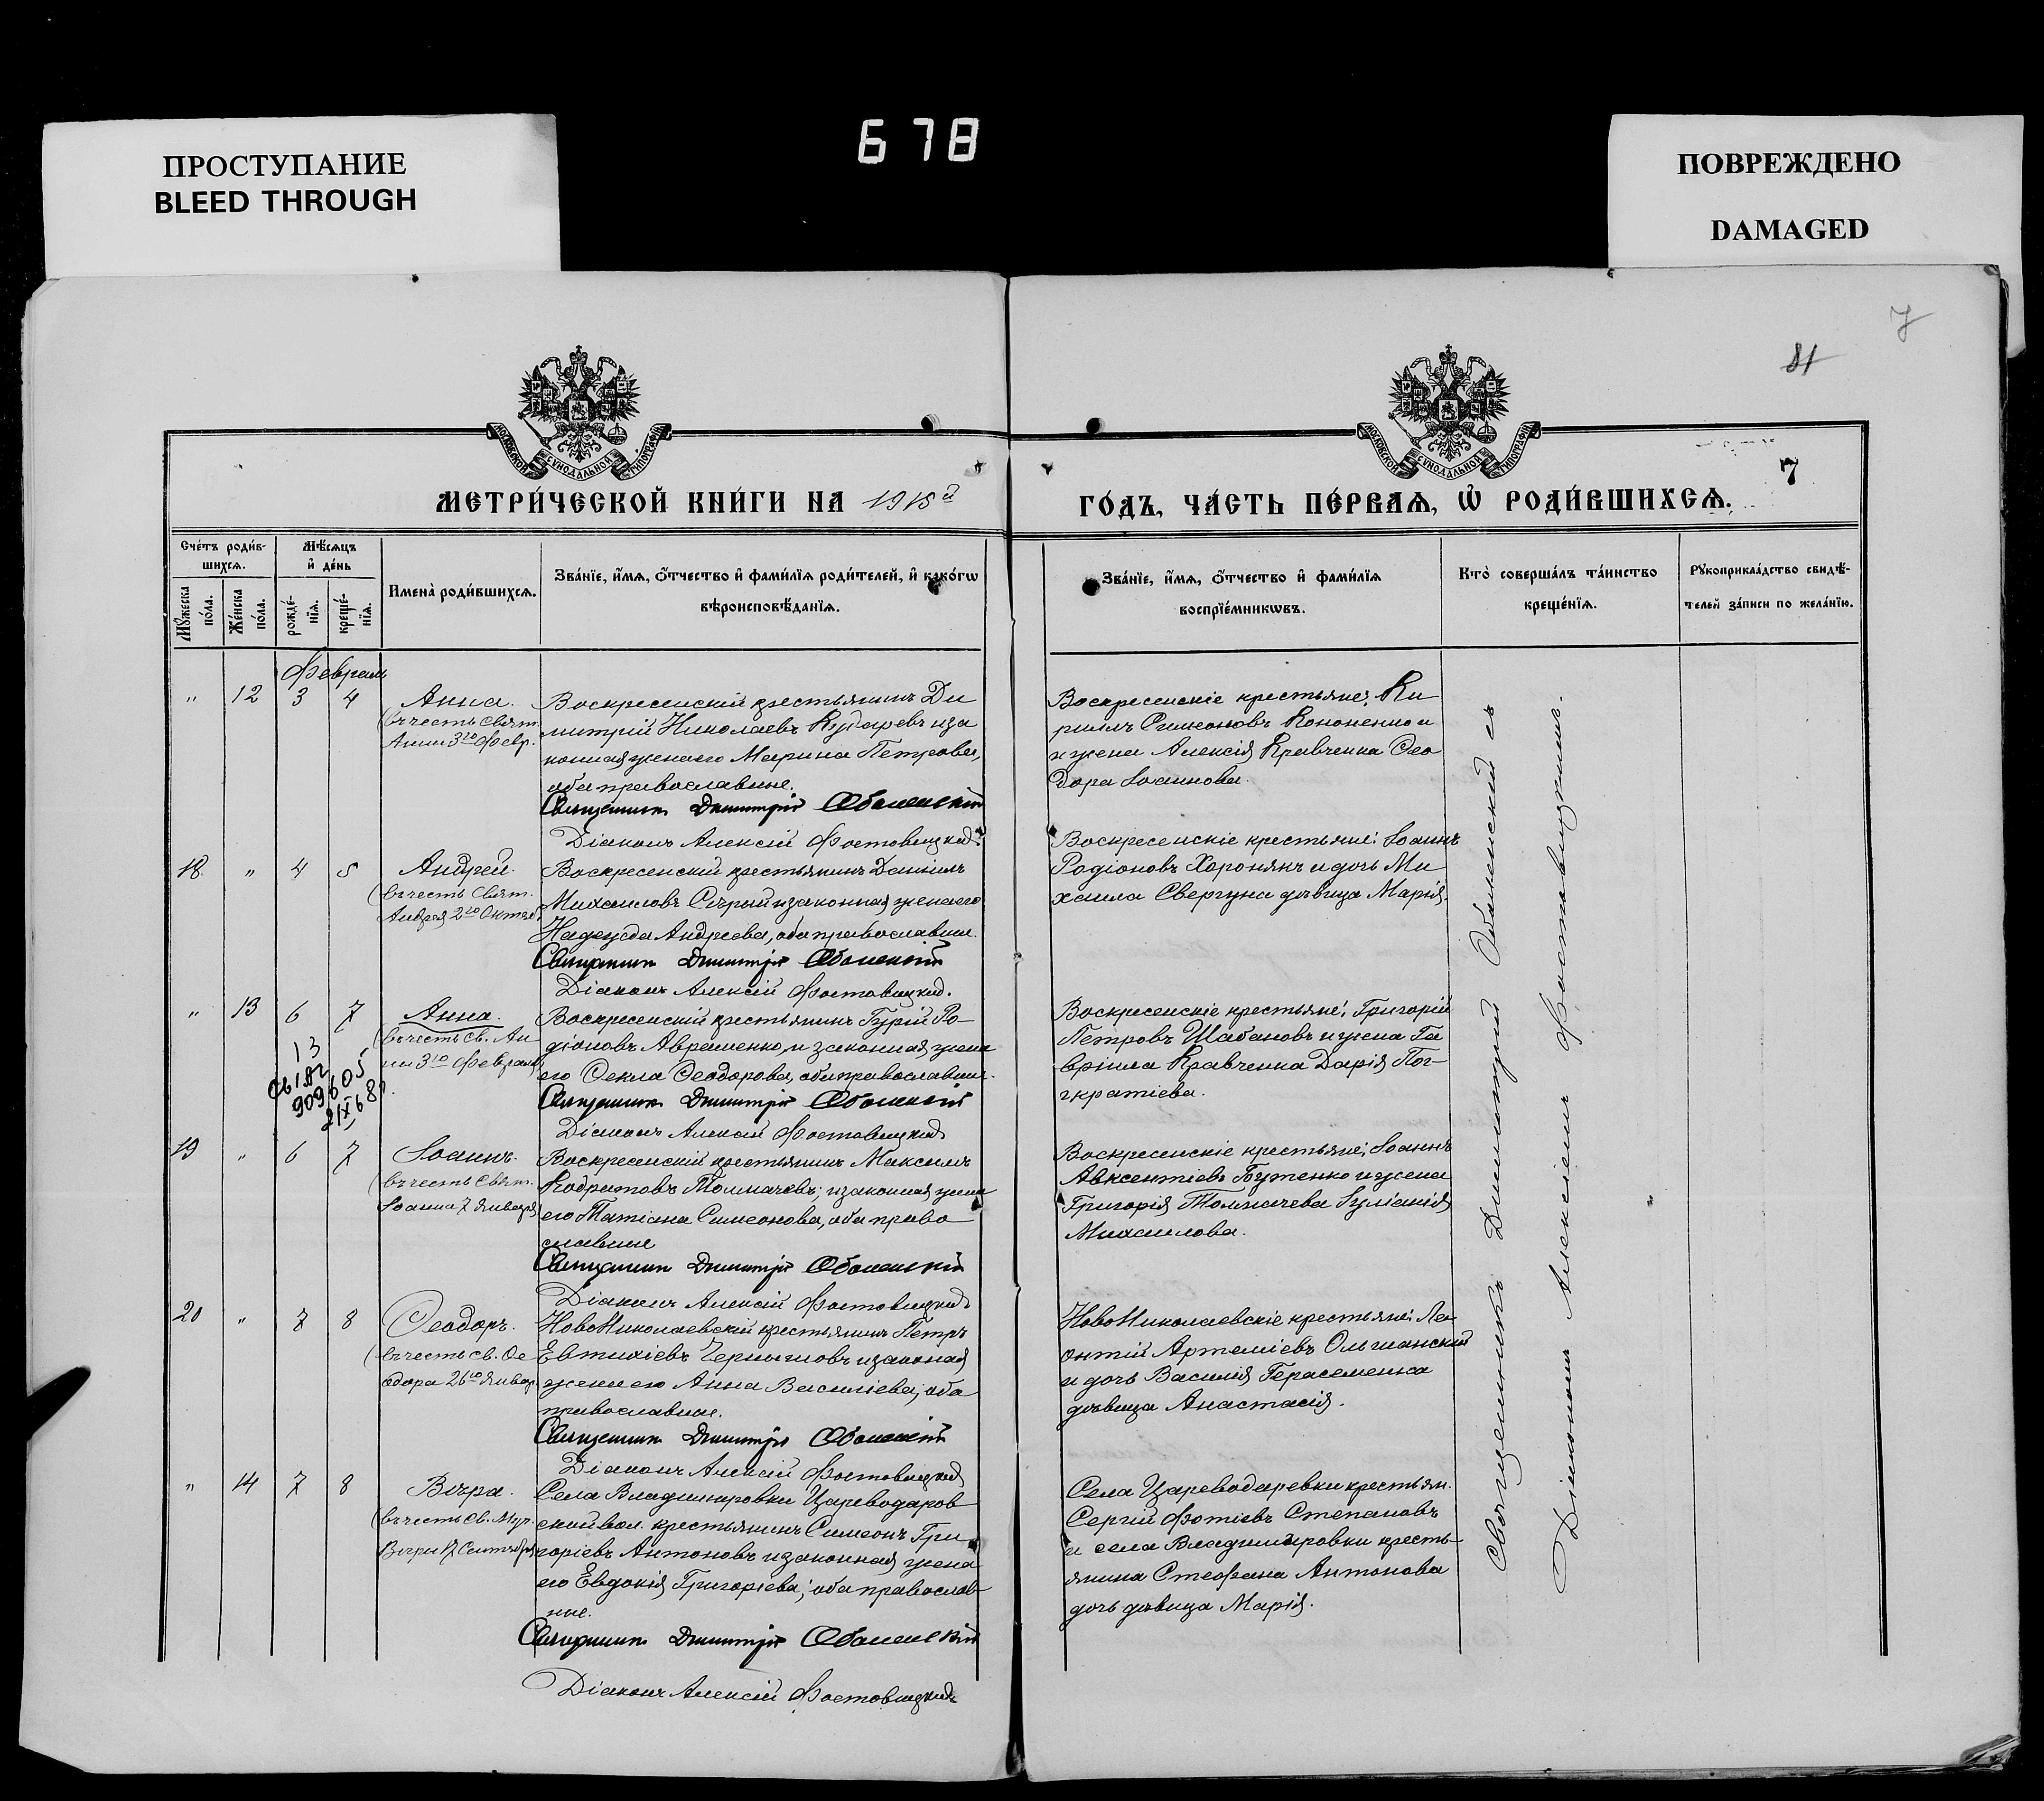 ПРОСТУПАНИЕ
BLEED THROUGH
678
ПОВРЕЖДЕНО
DAMAGED
7
81
МОСКОВСКОЙ СУНОДАЛЬНОЙ ТИПОГРАФІИ
МОСКОВСКОЙ СУНОДАЛЬНОЙ ТИПОГРАФІИ
МЕТРИ́ЧЕСКОЙ КНИ́ГИ НА 1915й
ГО́ДЪ, ЧА́СТЬ ПЕ́РВАѦ, Ѡ РОДИ́ВШИХСѦ.
7
Сче́тъ роди́в-
шихсѧ.
Мѣ́сѧцъ
и де́нь
Мꙋ́жеска
по́ла.
Же́нска
по́ла.
рожде́-
нїѧ.
креще́-
нїѧ.
Имена̀ роди́вшихсѧ.
Зва́нїе, и́мѧ, о́тчество и фами́лїѧ роди́телей, и како́гѡ
вѣроисповѣ́данїѧ.
Зва́нїе, и́мѧ, о́тчество и фами́лїѧ
воспрїе́мникѡвъ.
Кто̀ соверша́лъ та́инство
креще́нїѧ.
Рꙋкоприкла́дство свидѣ́-
телей за́писи по жела́нїю.
Февраль
" 12 3 4
Анна.
(въ честь Свят.
Анны 3го Февр.
Воскресенскій крестьянинъ Ди
митрій Николаевъ Кударевъ и за
конная жена его Марина Петрова,
оба православные.
Священникъ Димитрій Оболенскій
Діаконъ Алексій Фостовицкій
Воскресенскіе крестьяне: Ки
риллъ Симеоновъ Кононенко и
и жена Алексія Кравченка Ѳео
дора Іоаннова.
18 " 4 5
Андрей.
(въ честь Свят.
Андрея 2го Октяб.
Воскресенскій крестьянинъ Даніилъ
Михаиловъ Сѣрый и законная жена его
Надежда Андреева, оба православные.
Священникъ Димитрій Оболенскій
Діаконъ Алексій Фостовицкій.
Воскресенскіе крестьяне: Іоаннъ
Родіоновъ Харонякъ и дочь Ми
хаила Свергуна дѣвица Марія.
" 13 6 7
Анна.
(въ честь Св. Ан
ны 3го Февраля)
13
909605
Воскресенскій крестьянинъ Гурій Ро-
діоновъ Авраменко, и законная жена
его Ѳекла Ѳеодорова, оба православные.
Священникъ Димитрій Оболенскій
Діаконъ Алексій Фостовицкій
Воскресенскіе крестьяне: Григорій
Петровъ Шабановъ и жена Га
вріила Кравченка Дарія
19 " 6 7
Іоаннъ.
(въ честь Свят.
Іоанна 7 Января
Воскресенскій крестьянинъ Максимъ
Кодратовъ Толмачевъ, и законная жена
его Татіана Симеонова, оба право
славные
Священникъ Димитрій Оболенскій
Діаконъ Алексій Фостовицкій
Воскресенскіе крестьяне: Іоаннъ
Авксентіевъ Бутенко и жена
Григорія Толмачева Іуліанія
Михаилова.
20 " 7 8
Ѳеодоръ.
(въ честь св. Ѳе
одора 26го Январ.
Новониколаевскій крестьянинъ Петръ
Евтихіевъ Чернышовъ и законная
жена его Анна Василіева, оба
православные.
Священникъ Димитрій Оболенскій
Діаконъ Алексій Фостовицкій
Новониколаевскіе крестьяне: Ле
онтій Артеміевъ Ольшанскій
и дочь Василія Герасеменка
дѣвица Анастасія.
" 14 7 8
Вѣра.
(въ честь св. Муч.
Вѣры 17 Сентября
Села Владимировки Цареводаров
ской вол. крестьянинъ Симеонъ Гри
горіевъ Антоновъ и законная жена
его Евдокія Григоріева, оба православ
ные.
Священникъ Димитрій Оболенскій
Діаконъ Алексій Фостовицкій
Села Цареводаревки крестьян.
Сергій Фотіевъ Степановъ
и села Владимировки кресть-
янина Стефана Антонова
дочь дѣвица Марія.
Священникъ Димитрій Оболенскій съ
Діакономъ Алексіемъ Фостовицкимъ.